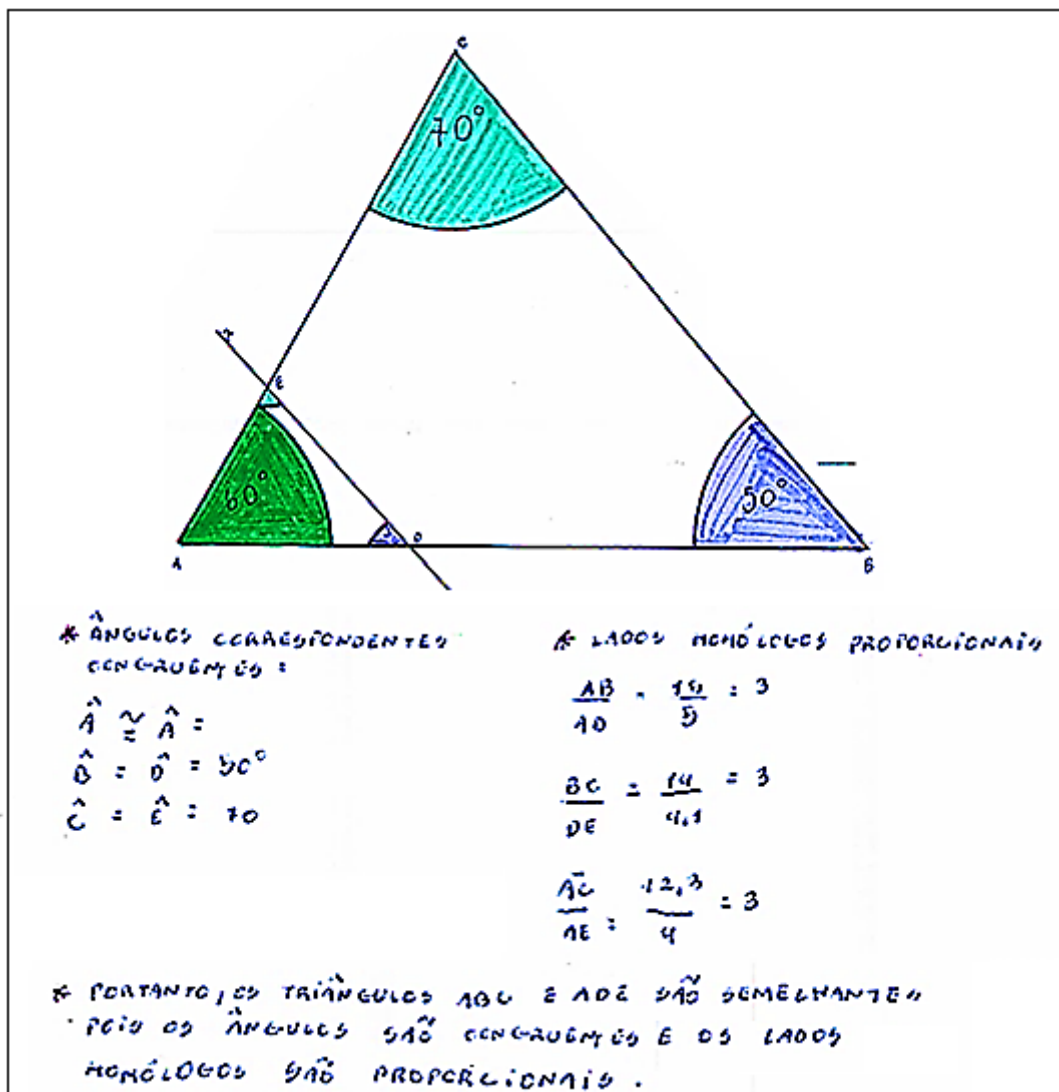 C
70°
r
E
60°
50°
A
D
B
* ÂNGULOS CORRESPONDENTES
CONGRUENTES :
Â ≅ Â =
B̂ = D̂ = 50°
Ĉ = Ê = 70
* LADOS HOMÓLOGOS PROPORCIONAIS
AB/AD = 15/5 = 3
BC/DE = 14/4,1 = 3
AC/AE = 12,3/4 = 3
* PORTANTO, OS TRIÂNGULOS ABC E ADE SÃO SEMELHANTES
POIS OS ÂNGULOS SÃO CONGRUENTES E OS LADOS
HOMÓLOGOS SÃO PROPORCIONAIS.